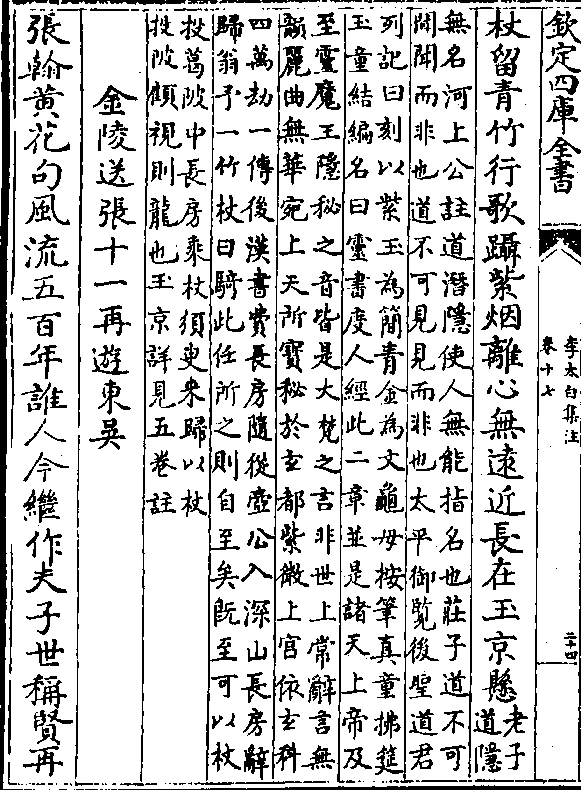 欽定四庫全書
李太白集注
卷十七
二十四
杖留青竹行歌躡紫烟離心無遠近長在玉京懸老子
道隱
無名河上公註道潛隱使人無能指名也莊子道不可
聞聞而非也道不可見見而非也太平御覽後聖道君
列記曰刻以紫玉為簡青金為文龜母按筆真童拂筵
玉童結編名曰靈書度人經此二章並是諸天上帝及
至靈魔王隱秘之音皆是大梵之言非世上常辭言無
韻麗曲無華宛上天所寶秘於玄都紫微上宮依玄科
四萬劫一傳後漢書費長房隨從壺公入深山長房辭
歸翁予一竹杖曰騎此任所之則自至矣既至可以杖
投葛陂中長房乘杖須臾來歸以杖
投陂顧視則龍也玉京詳見五卷註
金陵送張十一再遊東吳
張翰黄花句風流五百年誰人今繼作夫子世稱賢再